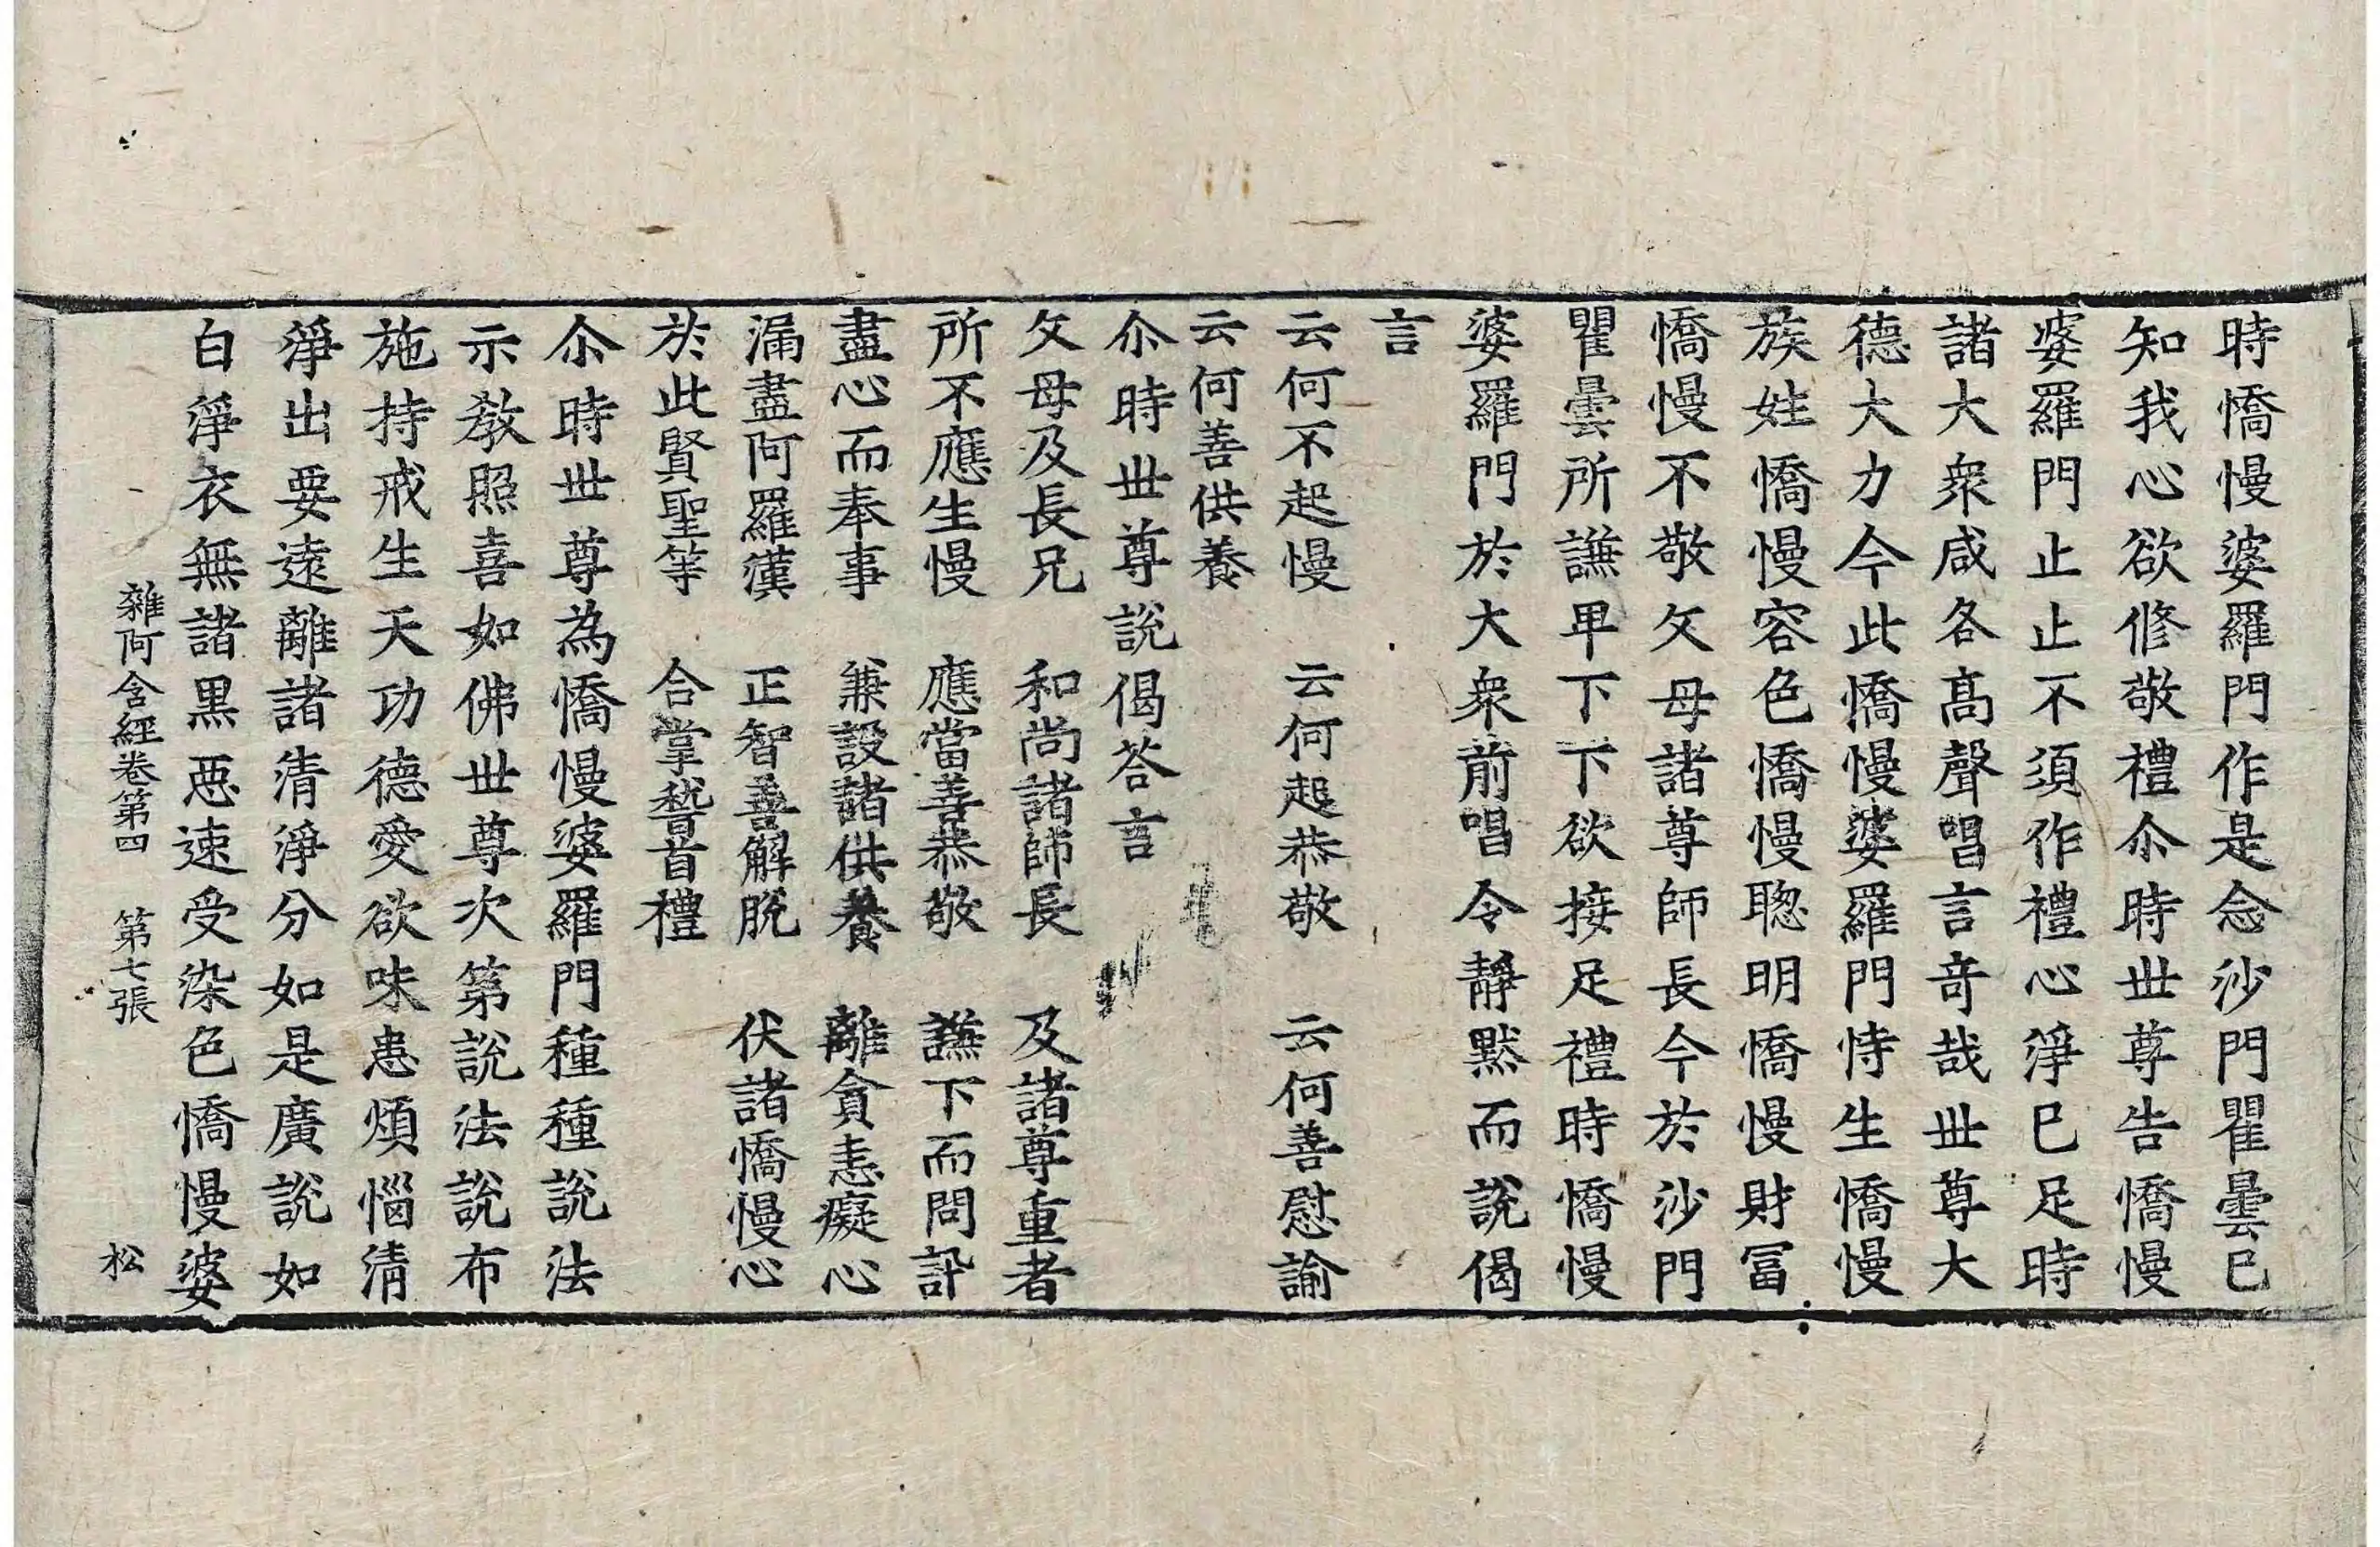 時憍慢婆羅門作是念沙門瞿曇已
知我心欲修敬禮尒時世尊告憍慢
婆羅門止止不須作禮心淨已足時
諸大衆咸各高聲唱言奇哉世尊大
德大力今此憍慢婆羅門恃生憍慢
族姓憍慢容色憍慢聰明憍慢財冨
憍慢不敬父母諸尊師長今於沙門
瞿曇所謙卑下下欲接足禮時憍慢
婆羅門於大衆前唱令靜默而說偈
言
云何不起慢　云何起恭敬　云何善慰諭
云何善供養
尒時世尊說偈荅言
父母及長兄　和尚諸師長　及諸尊重者
所不應生慢　應當善恭敬　謙下而問訊
盡心而奉事　兼設諸供養　離貪恚癡心
漏盡阿羅漢　正智善解脫　伏諸憍慢心
於此賢聖等　合掌稽首禮
尒時世尊為憍慢婆羅門種種說法
示教照喜如佛世尊次第說法說布
施持戒生天功德愛欲味患煩惱清
淨出要遠離諸清淨分如是廣說如
白淨衣無諸黑惡速受染色憍慢婆
雜阿含經卷第四　第七張　松